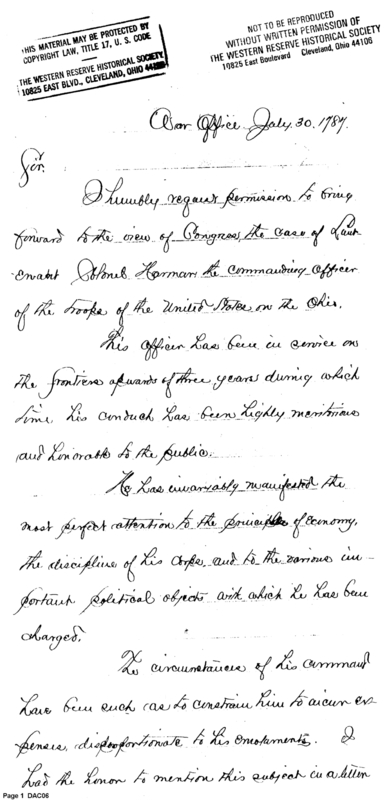 THIS MATERIAL MAY BE PROTECTED BY
COPYRIGHT LAW, TITLE 17, U. S. CODE
THE WESTERN RESERVE HISTORICAL SOCIETY
10825 EAST BLVD., CLEVELAND, OHIO 44106
NOT TO BE REPRODUCED
WITHOUT WRITTEN PERMISSION OF
THE WESTERN RESERVE HISTORICAL SOCIETY
10825 East Boulevard Cleveland, Ohio 44106
War Office July 30. 1787.
Sir.
I humbly request permission to bring
forward to the view of Congress, the case of Lieut
enant Colonel Harmar the commanding officer
of the troops of the United States on the Ohio.
This officer has been in service on
the frontiers upwards of three years during which
time his conduct has been highly meritorious
and honorable to the public.
He has invariably manifested the
most perfect attention to the principles of economy,
the discipline of his corps, and to the various im
portant political objects with which he has been
charged.
The circumstances of his command
have been such as to constrain him to incur ex
penses, disproportionate to his emoluments. I
had the honor to mention this subject in a letter
Page 1 DAC06